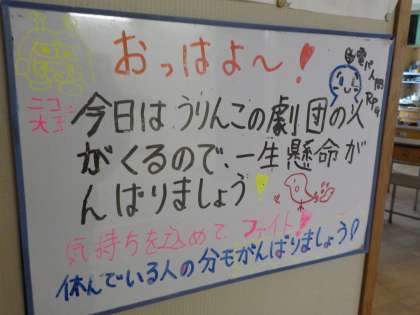 おっはよ〜!
ニコ
大王
今日はうりんこの劇団の人
がくるので、一生懸命が
んばりましょう!
気持ちを込めてファイト!
休んでいる人の分モがんばりましょう?